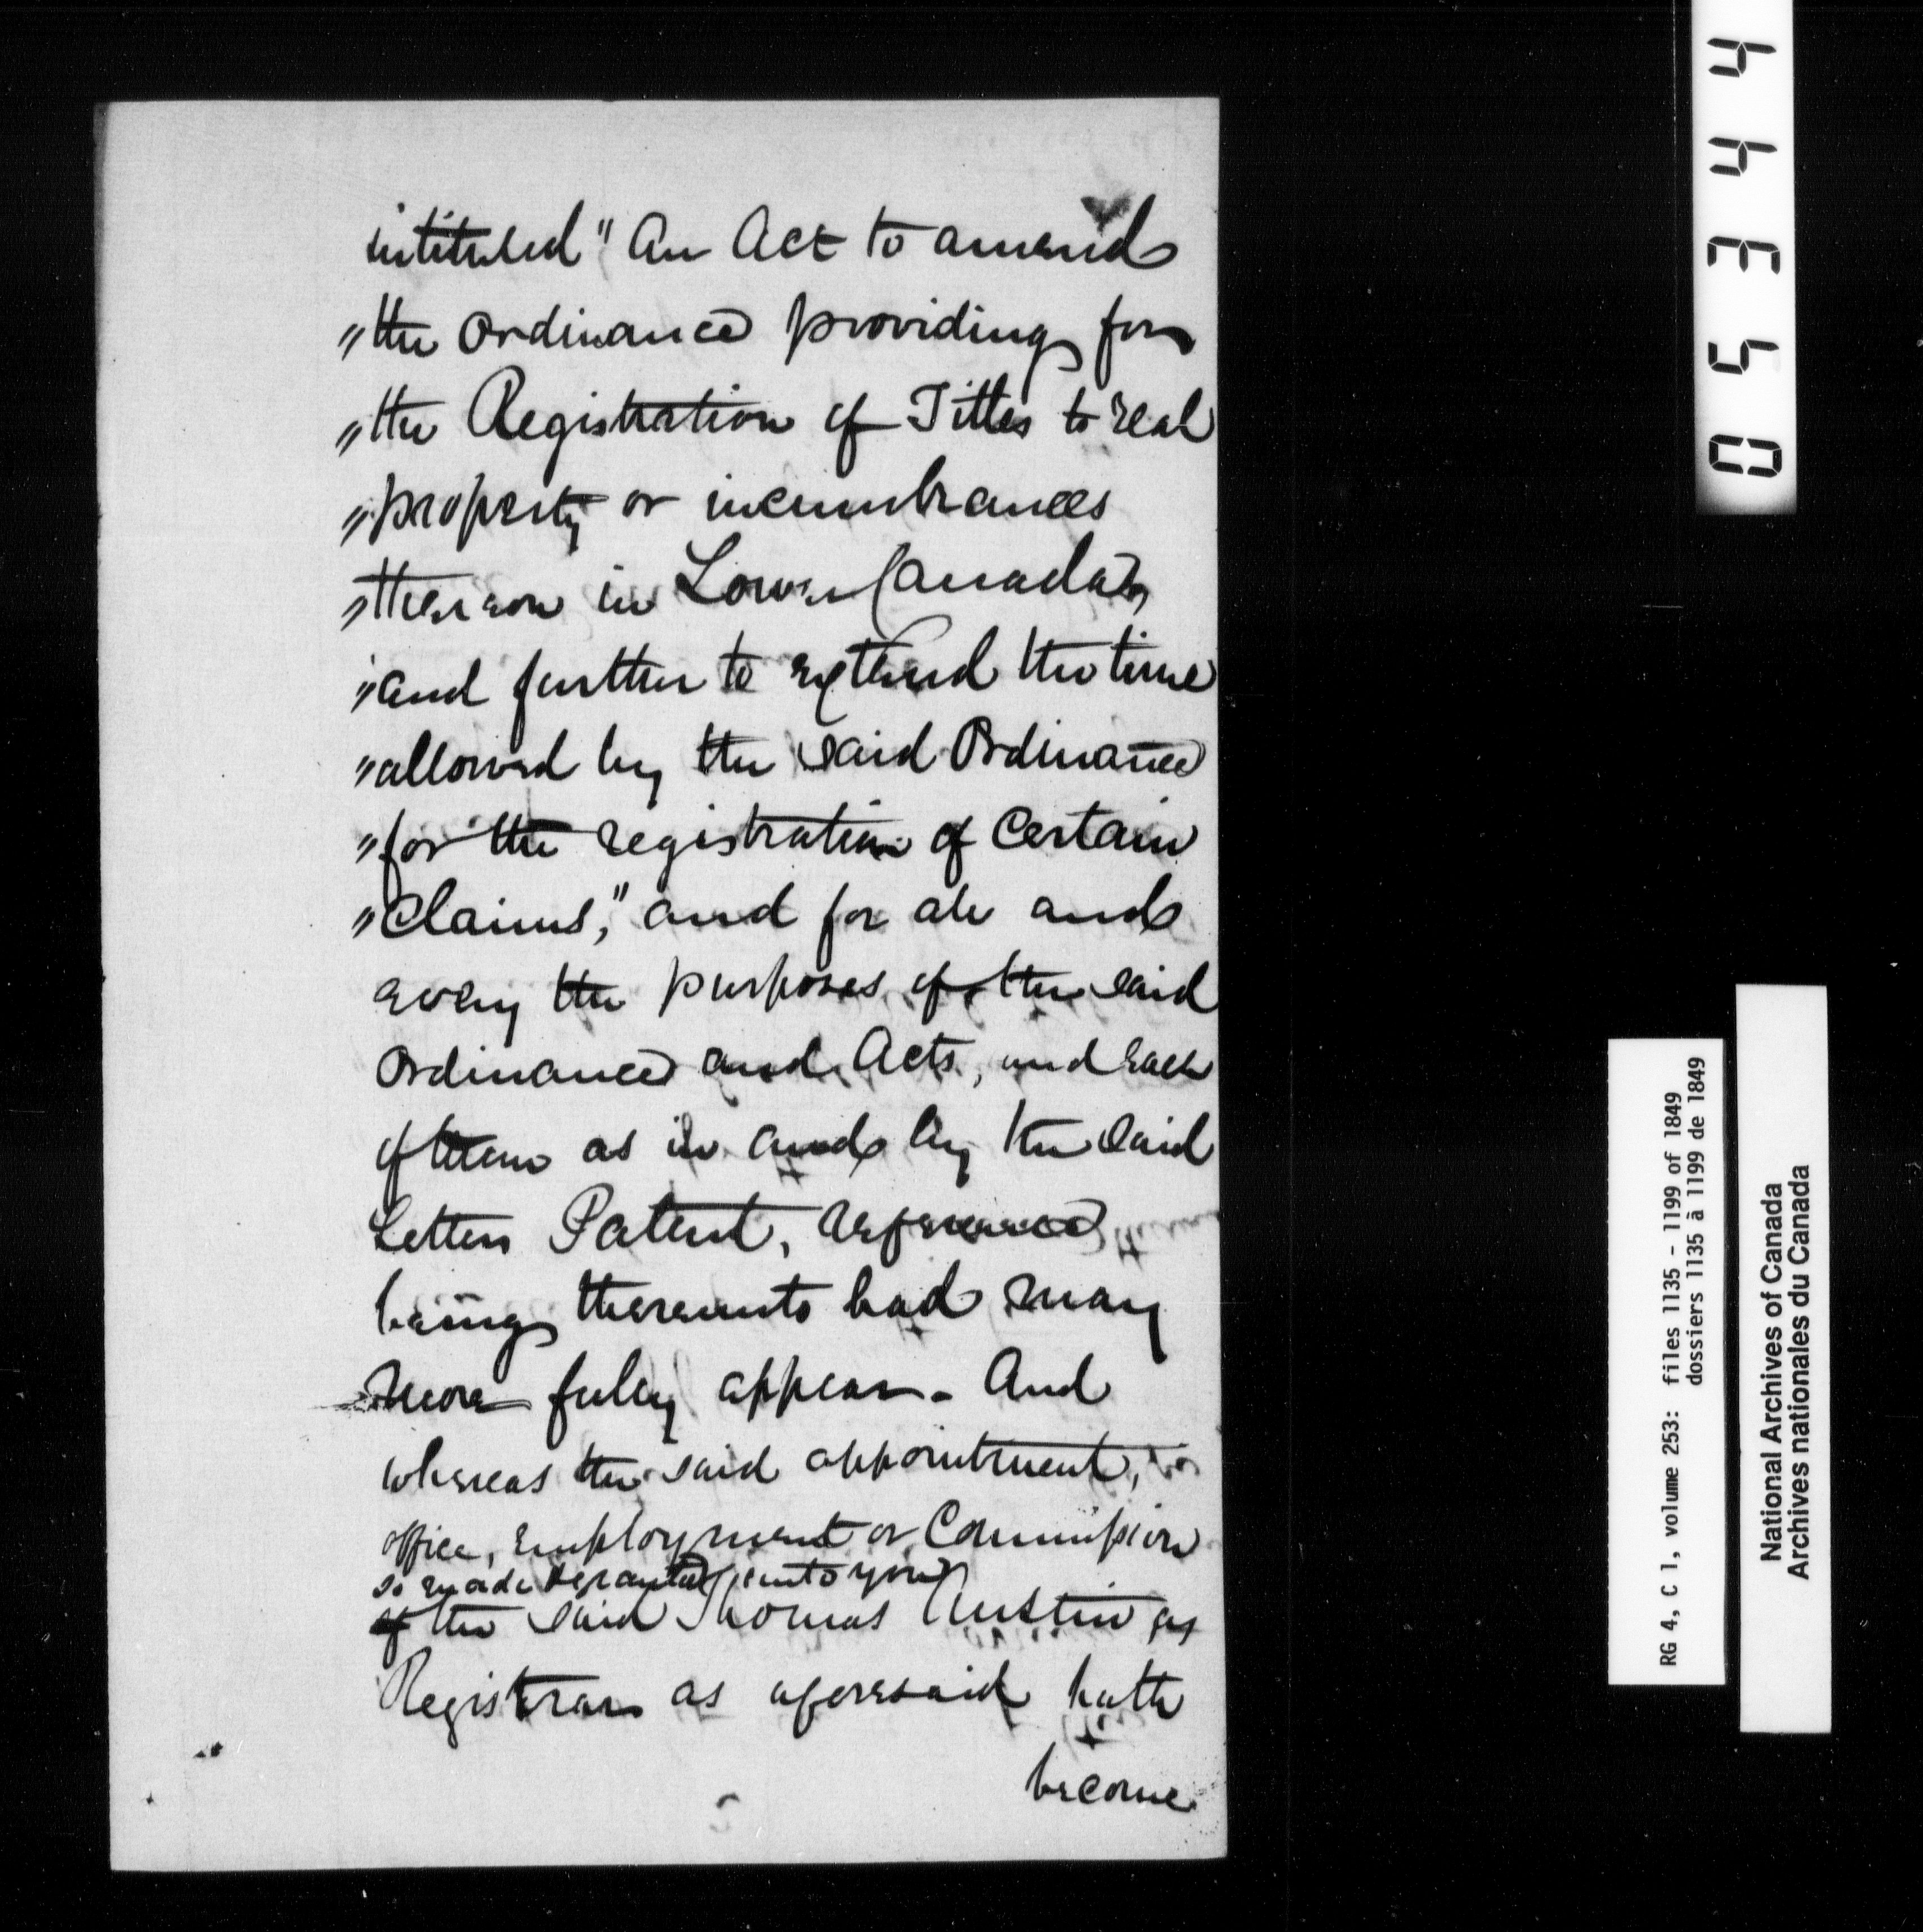 intituled "An Act to amend
"the Ordinance providing for
"the Registration of Titles to real
"property or incumbrances
"thereon in Lower Canada,
"and further to extend the time
"allowed by the said Ordinance
"for the registration of Certain
"Claims," and for all and
every the purposes of the said
Ordinance and Acts, and each
of them as in and by the said
Letters Patent, reference
being thereunto had may
more fully appear - And
whereas the said appointment,
office, Employment or Commission
so made & granted unto you
of the said Thomas Austin as
Registrar as aforesaid hath
become
05344
RG 4, C 1, volume 253: files 1135 - 1199 of 1849
dossiers 1135 à 1199 de 1849
National Archives of Canada
Archives nationales du Canada